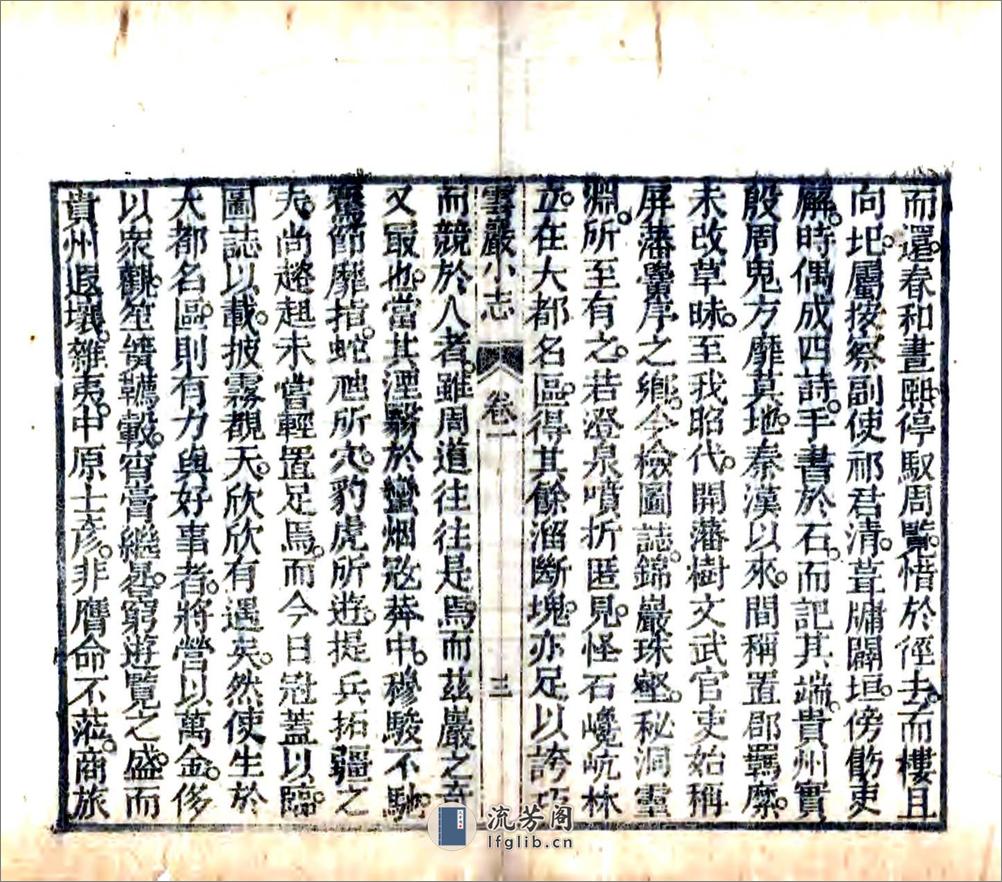 而還。春和晝熙。停馭周覽。惜於徑去。而樓且
向圮。屬按察副使祁君清。葺牗闢垣。傍飭吏
廨。時偶成四詩。手書於石。而記其端。貴州實
殷周鬼方靡莫地。秦漢以來。間稱置郡羈縻。
未改草昧。至我昭代。開藩樹文武官吏。始稱
屏藩黌序之鄉。今檢圖誌。錦巖珠壑。秘洞靈
淵。所至有之。若澄泉噴折匿見。怪石巉屼林
立。在大都名區。得其餘溜斷塊。亦足以誇巧
雪巖小志 卷一 三
而競於人者。雖周道往往是焉。而茲巖之奇
又最也。當其湮翳於蠻烟㓂莽中。穆駿不馳。
騫節靡指。蛇虺所穴。豹虎所遊。提兵拓疆之
夫。尚趑趄未嘗輕置足焉。而今日冠蓋以臨。
圖誌以載。披霧覩天。欣欣有遇矣。然使生於
大都名區。則有力與好事者。將營以萬金。侈
以衆觀。笙簧韉轂。宵膏繼晷。窮遊覽之盛。而
貴州遐壤。雜夷。中原士彥。非膺命不蒞。商旅
流芳阁
lfglib.cn